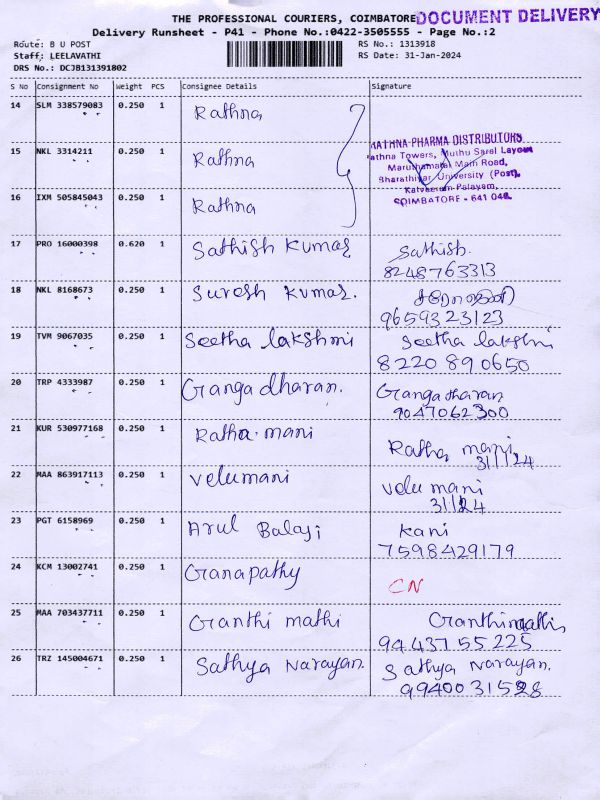 THE PROFESSIONAL COURIERS, COIMBATORE DOCUMENT DELIVERY
Delivery Runsheet - P41 - Phone No.:0422-3505555 - Page No.:2
Route: B U POST
Staff: LEELAVATHI
DRS No.: DCJB131391802
RS No.: 1313918
RS Date: 31-Jan-2024
S No Consignment No Weight PCS Consignee Details Signature
14 SLM 338579083 0.250 1 Rathna
15 NKL 3314211 0.250 1 Rathna
16 IXM 505845043 0.250 1 Rathna
RATHNA PHARMA DISTRIBUTORS
Rathna Towers, Muthu Sarel Layout
Maruthamalai Main Road,
Bharathiyar University (Post),
Kalveeram Palayam,
COIMBATORE - 641 046.
17 PRO 16000398 0.620 1 Sathish Kumar Sathish.
8248763313
18 NKL 8168673 0.250 1 Suresh Kumar.
9659323123
19 TVM 9067035 0.250 1 Seetha lakshmi Seetha lakshmi
8220890650
20 TRP 4333987 0.250 1 Gangadharan. Gangadharan
9047062300
21 KUR 530977168 0.250 1 Ratha mani Ratha mani
31/1/24
22 MAA 863917113 0.250 1 velumani velu mani
31/1/24
23 PGT 6158969 0.250 1 Arul Balaji Kani
7598429179
24 KCM 13002741 0.250 1 Ganapathy CN
25 MAA 703437711 0.250 1 Ganthi mathi Ganthimathi
9443755225
26 TRZ 145004671 0.250 1 Sathya Narayan. Sathya Narayan.
9940031528